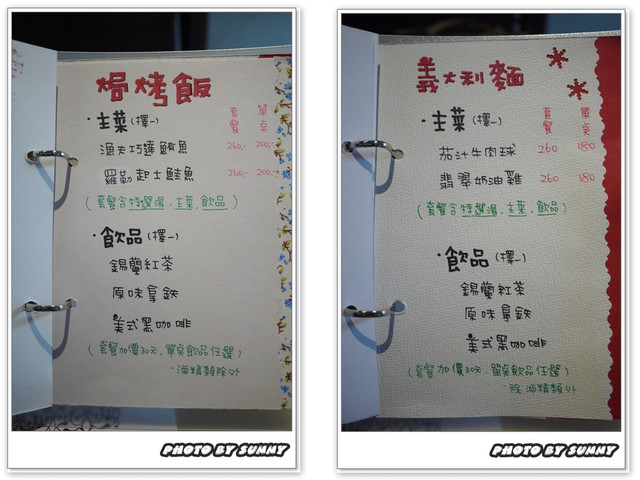 焗烤飯
套餐 單點
·主菜(擇一)
漁夫巧達鮪魚 260,- 200,-
羅勒起士鮭魚 260,- 200,-
(套餐含特選湯.主菜.飲品)
·飲品(擇一)
錫蘭紅茶
原味拿鉄
美式黑咖啡
(套餐加價30元,單桌飲品任選)
·酒精類除外
PHOTO BY SUNNY
義大利麵
套餐 單桌
·主菜(擇一)
茄汁牛肉球 260 180
翡翠奶油雞 260 180
(套餐含特選湯.主菜.飲品)
·飲品(擇一)
錫蘭紅茶
原味拿鉄
美式黑咖啡
(套餐加價30元,單桌飲品任選)
·除酒精類外
PHOTO BY SUNNY